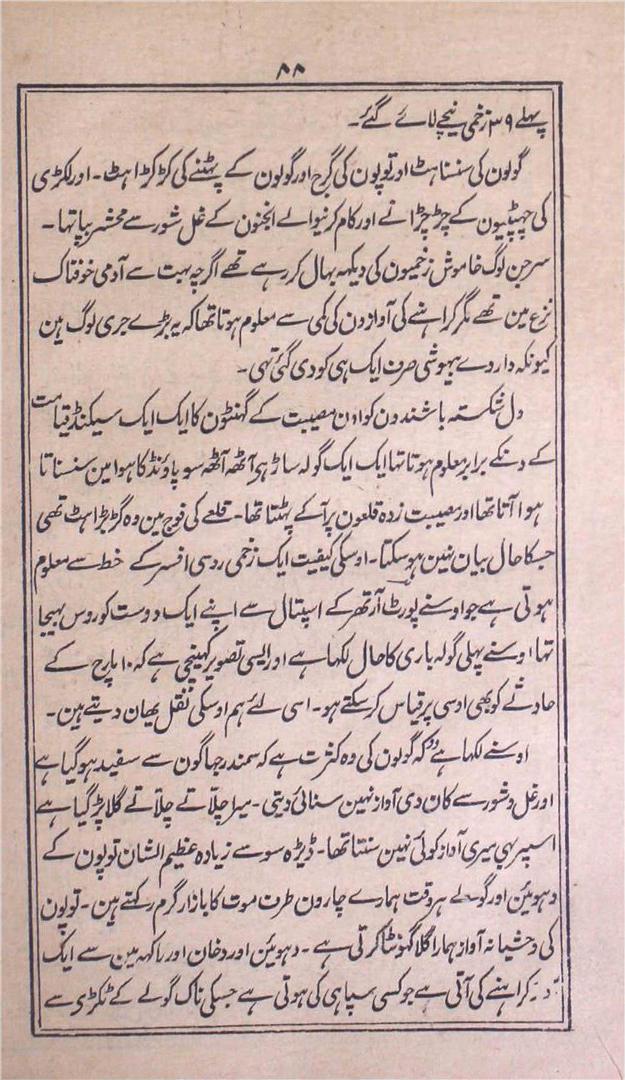 ۸۸
پہلے ۳۹ زخمی نیچے لائے گئے۔
گولون کی سنسناہٹ اور توپون کی گرج اور گولون کے پہٹنے کی کڑکڑاہٹ۔ اور لکڑی
کی چہپٹیون کے چڑچڑانے اور کام کرنیوالے انجنون کے غل شور سے محشر بپا تہا۔
سرجن لوگ خاموش زخمیون کی دیکہہ بہال کر رہے تھے اگرچہ بہت سے آدمی خوفناک
نزع مین تھے مگر کراہنے کی آوازون کی کمی سے معلوم ہوتا تھا کہ یہ بڑے جری لوگ ہین
کیونکہ داروے بیہوشی صرف ایک ہی کو دی گئی تہی۔
دل شکستہ باشندون کو اون مصیبت کے گھنٹون کا ایک ایک سیکنڈ قیامت
کے دن کے برابر معلوم ہوتا تہا ایک ایک گولہ ساڑہی آٹھہ آٹھہ سو پاونڈ کا ہوا مین سنسناتا
ہوا آتا تھا اور مصیبت زدہ قلعون پر آکے پھٹتا تھا۔ قلعے کی فوج مین وہ گڑبڑاہٹ تھی
جسکا حال بیان نہین ہوسکتا۔ اوسکی کیفیت ایک زخمی روسی افسر کے خط سے معلوم
ہوتی ہے جو اوسنے پورٹ آرتھر کے اسپتال سے اپنے ایک دوست کو روس بہیجا
تہا اوسنے پہلی گولہ باری کا حال لکھا ہے اور ایسی تصویر کھینچی ہے کہ ۱۰ مارچ کے
حادثے کو بھی اوسی پر قیاس کرسکتے ہو۔ اسی لئے ہم اوسکی نقل یھان دیتے ہین۔
اوسنے لکھا ہے ”کہ گولون کی وہ کثرت ہے کہ سمندر جہاگون سے سفید ہوگیا ہے
اور غل و شور سے کان دی آواز نہین سنائی دیتی۔ میرا چلّاتے چلّاتے گلا پڑ گیا ہے
اسپر بہی میری آواز کوئی نہین سنتا تھا۔ ڈیڑہ سو سے زیادہ عظیم الشان توپون کے
دہوئین اور گولے ہر وقت ہمارے چارون طرف موت کا بازار گرم رکہتے ہین۔ توپون
کی وحشیانہ آواز ہمارا گلا گھونٹا کرتی ہے۔ دہوئین اور دخان اور راکہہ مین سے ایک
کراہنے کی آتی ہے جو کسی سپاہی کی ہوتی ہے جسکی ناک گولے کے ٹکڑی سے